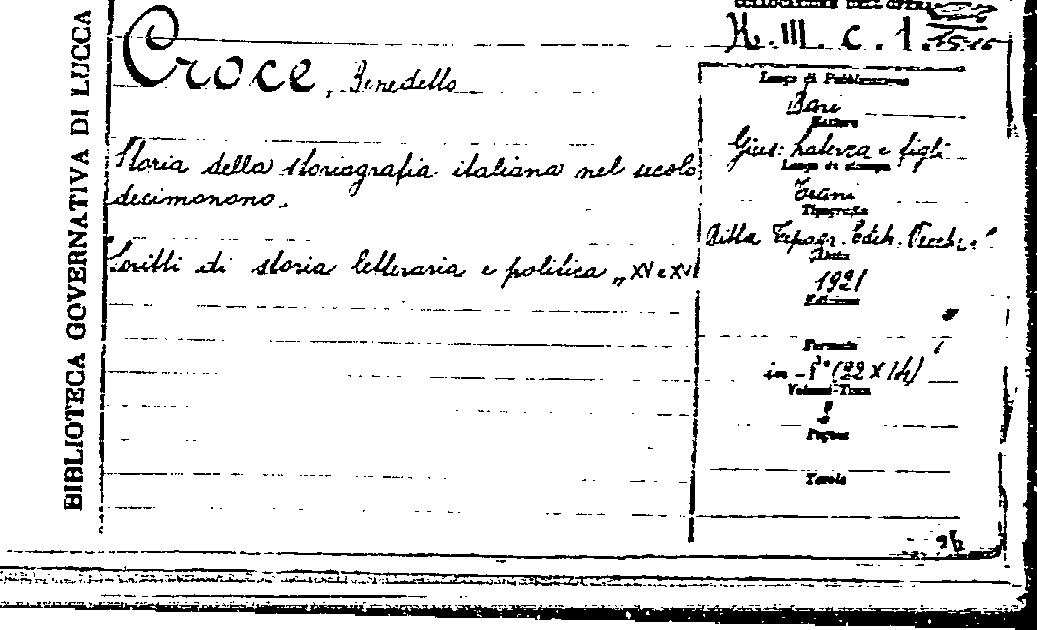 BIBLIOTECA GOVERNATIVA DI LUCCA
COLLOCAZIONE DELL'OPERA
H. III. c. 1. 15-16
Croce, Benedetto
Storia della storiografia italiana nel secolo
decimonono.
Scritti di storia letteraria e politica „ XV e XVI
Luogo di Pubblicazione
Bari
Editore
Gius: Laterza e figli
Luogo di stampa
Trani
Tipografia
Ditta Tipogr. Edit. Vecchi e C.
Data
1921
Edizione
Formato
in - 8° (22 X 14)
Volumi-Tomi
2
Pagine
Tavole